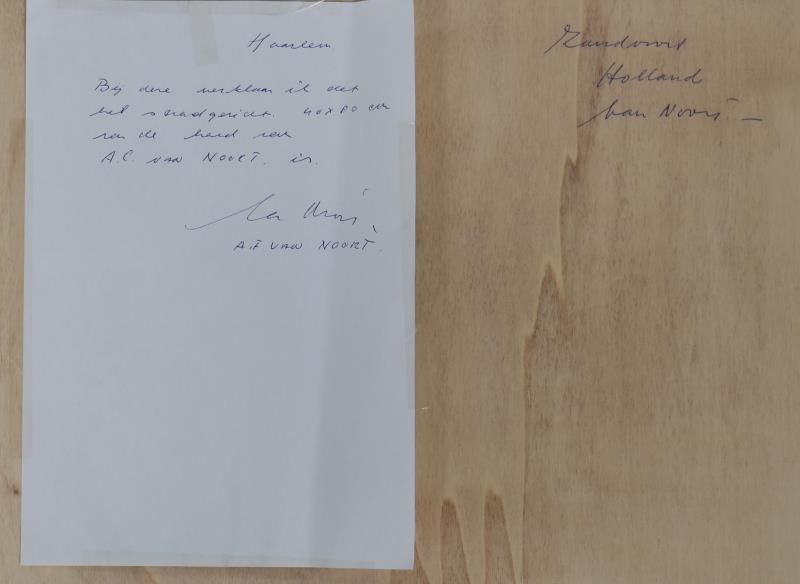 Haarlem
Bij deze verklaar ik dat
het strandgezicht. 40x80 cm
van de hand van
A.C. VAN NOORT. is.
van Noort
A.F VAN NOORT.
Zandvoort
Holland
van Noort